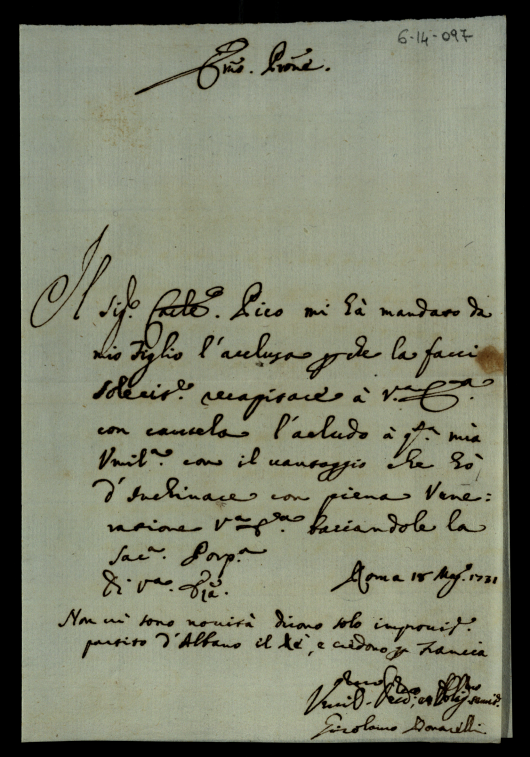 6-14-097
Em̃o. Prõne.
Il Sigr. Carle. Pico mi hà mandato da
mio Figlio l'acclusa perche la facci
solecite. recapitare à V.a E.za
con cautela l'acludo à qta. mia
Vmila. con il vantaggio che hò
d'Inchinare con piena Vene:
ratione V.a E.za baciandole la
Saca. Porpa.
Di Va. Em̃a.
Roma 18 Mago. 1721
Non vi sono novità dicono solo improvise.
partito d'Albano il Rè, e credono per Francia
Girolamo